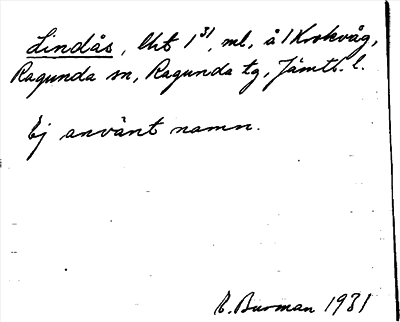 Lindås, lht 1³¹, ml, å 1 Krokvåg,
Ragunda sn, Ragunda tg, Jämtl. l.
Ej använt namn.
E. Burman 1931